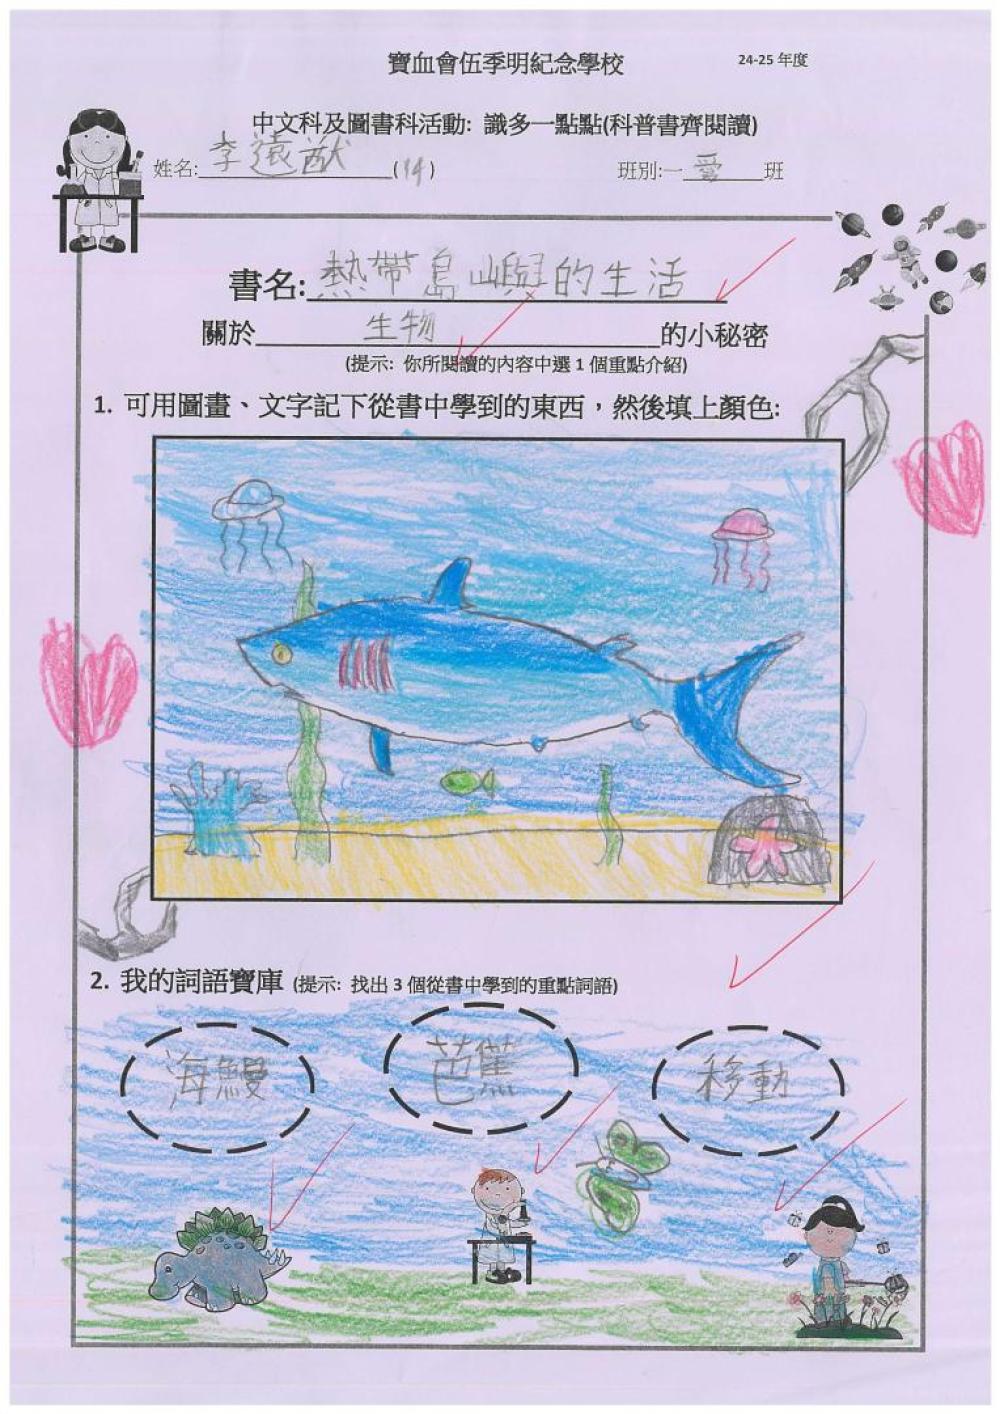 寶血會伍季明紀念學校 24-25 年度
中文科及圖書科活動: 識多一點點(科普書齊閱讀)
姓名: 李遠猷 (14) 班別:一 愛 班
書名: 熱帶島嶼的生活
關於 生物 的小秘密
(提示: 你所閱讀的內容中選 1 個重點介紹)
1. 可用圖畫、文字記下從書中學到的東西，然後填上顏色:
2. 我的詞語寶庫 (提示: 找出 3 個從書中學到的重點詞語)
海鰻 芭蕉 移動